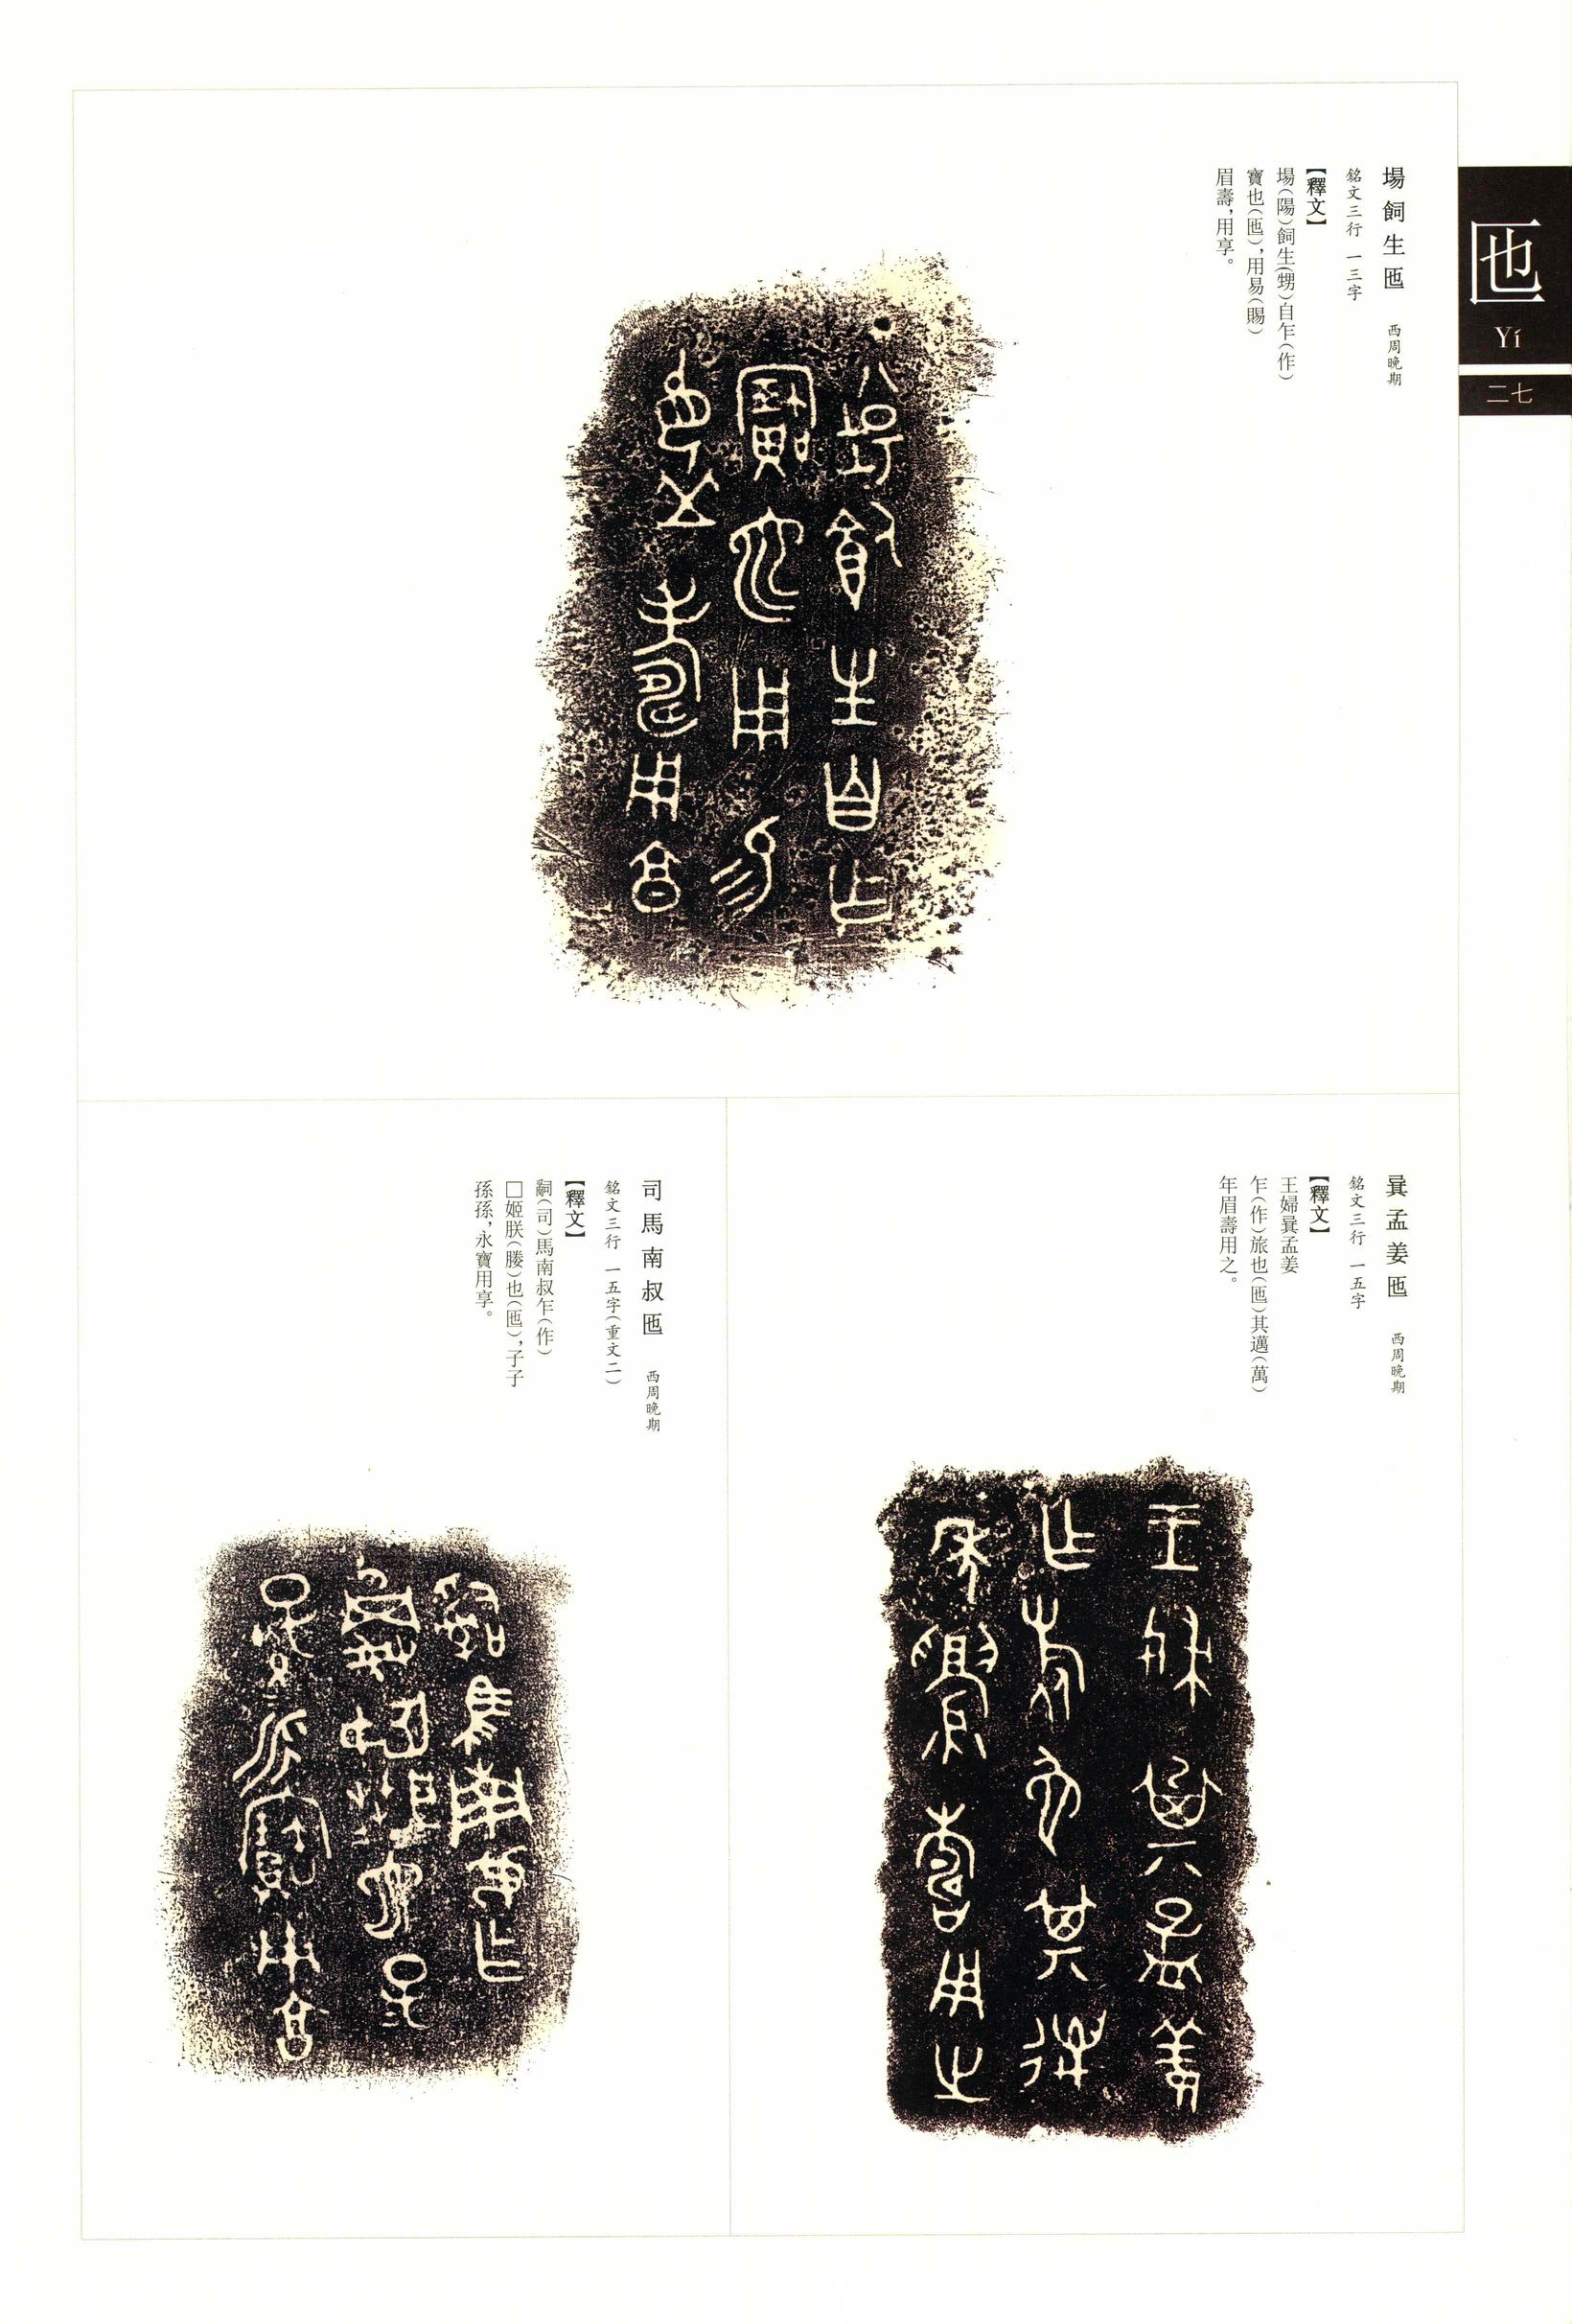 匜
Yí
二七
場飼生匜 西周晚期
銘文三行 一三字
【釋文】
場(陽)飼生(甥)自乍(作)
寶也(匜),用易(賜)
眉壽,用享。
䀠孟姜匜 西周晚期
銘文三行 一五字
【釋文】
王婦㠱孟姜
乍(作)旅也(匜)其邁(萬)
年眉壽用之。
司馬南叔匜 西周晚期
銘文三行 一五字(重文二)
【釋文】
嗣(司)馬南叔乍(作)
□姬朕(媵)也(匜),子子
孫孫,永寶用享。